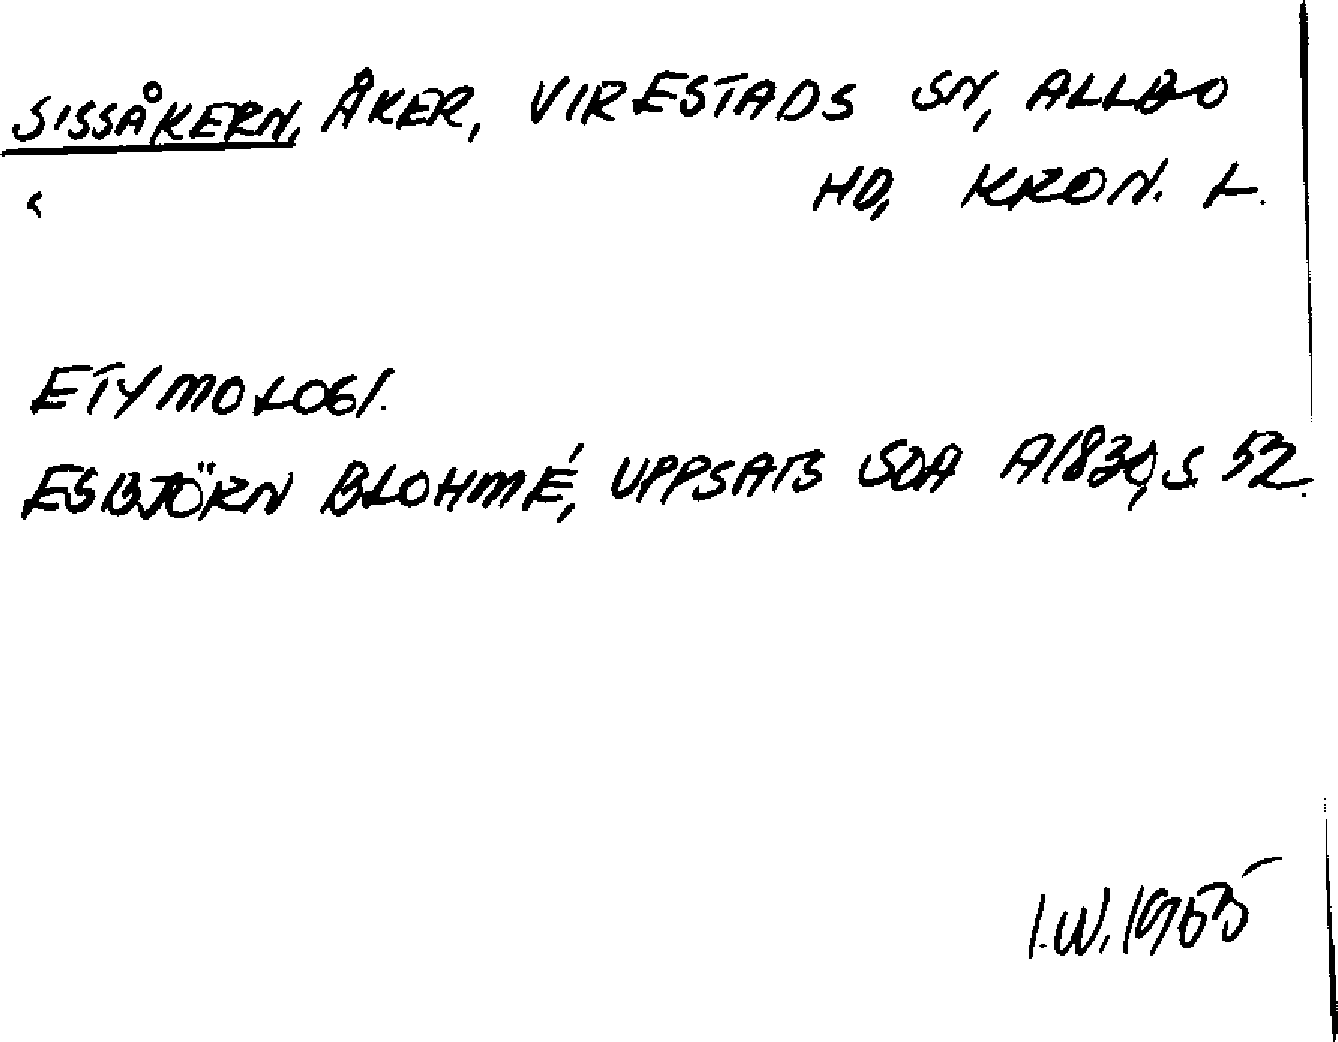 SISSÅKERN, ÅKER, VIRESTADS SN, ALLBO
HD, KRON. L.
ETYMOLOGI.
ESBJÖRN BLOHMÉ, UPPSATS SOA A1830, S. 52.
I.W. 1965